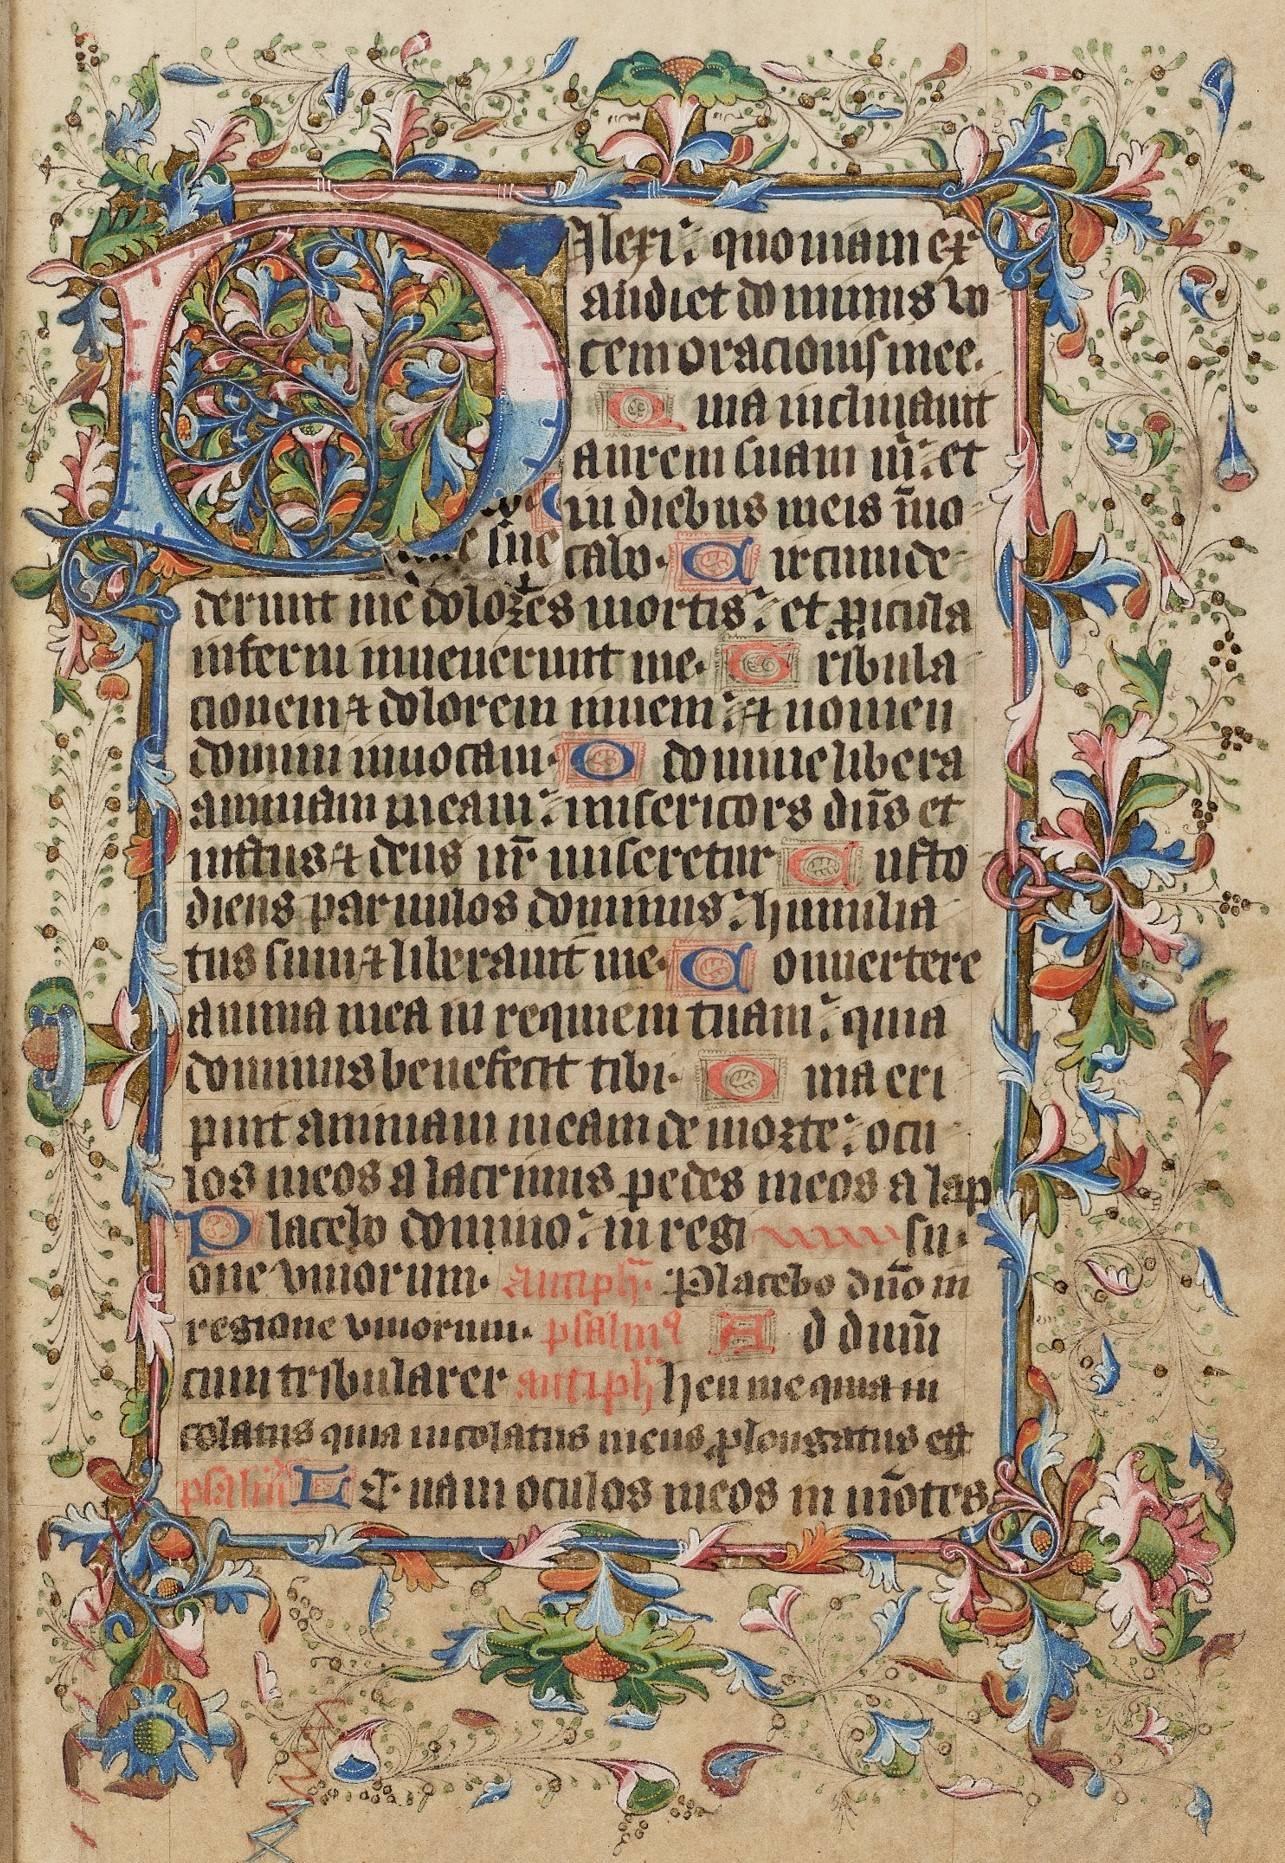 Dilexi: quoniam ex
audiet dominus vo
cem oracionis mee.
Quia inclinauit
aurem suam m̄: et
in diebus meis īuo
cabo. Circumde
derunt me dolores mortis: et p̱icula
inferni inuenerunt me. Tribula
cionem ⁊ dolorem inueni: ⁊ nomen
domini inuocaui. O domine libera
animam meam: misericors dn̄s et
iustus ⁊ deus nr̄ miseretur Custo
diens paruulos dominus: humilia
tus sum ⁊ liberauit me. Conuertere
anima mea in requiem tuam: quia
dominus benefecit tibi. Quia eri
puit animam meam de morte: ocu
los meos a lacrimis pedes meos a lap
Placebo domino: in regi su.
one viuorum. Antiph̄. Placebo dn̄o in
regione viuorum. psalmꝰ Ad dn̄m
cum tribularer antiph̄ Heu me quia in
colatus quia incolatus meus ꝓlongatus est
psalm̄ Leuaui oculos meos in mōtes